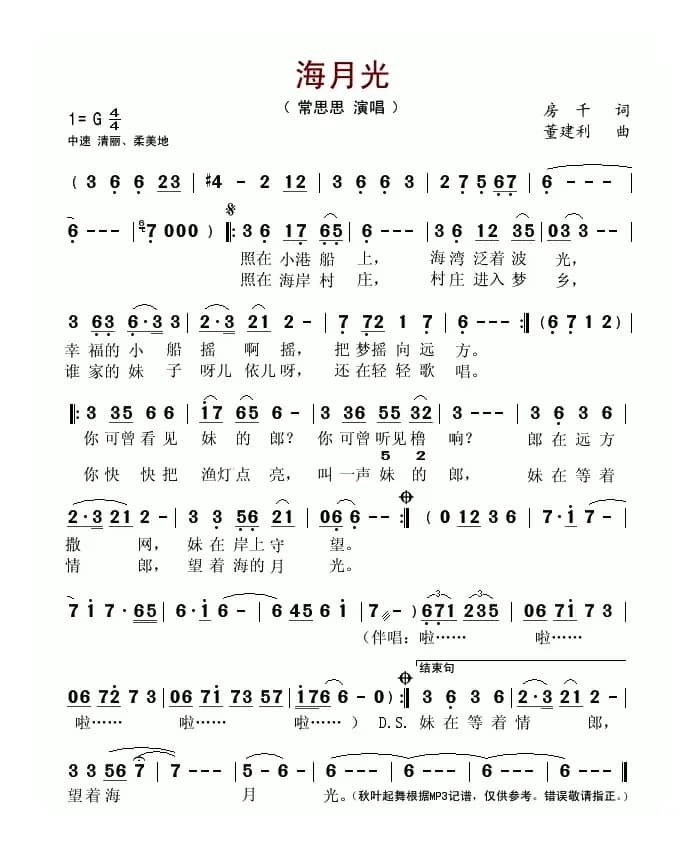 海月光
（ 常思思 演唱 ）
1= G 4/4
房 千 词
中速 清丽、柔美地
董建利 曲
( 3 6 6 23 | #4 - 2 12 | 3 6 6 3 | 2 7 5 67 | 6 - - - |
6 - - - | 7 0 0 0 ) |: 3 6 17 65 | 6 - - - | 3 6 12 35 | 03 3 - - |
照在 小港 船 上， 海湾 泛着 波 光，
照在 海岸 村 庄， 村庄 进入 梦 乡，
3 63 6·3 3 | 2·3 21 2 - | 7 72 1 7 | 6 - - - :| ( 6 7 1 2 ) |
幸 福的 小 船 摇 啊 摇， 把 梦摇 向 远 方。
谁 家的 妹 子 呀儿 依儿 呀， 还 在轻 轻 歌 唱。
|: 3 35 6 6 | 17 65 6 - | 3 36 55 32 | 3 - - - | 6 3 3 6 |
你 可曾 看 见 妹 的 郎？ 你 可曾 听见 橹 响？ 郎 在 远 方
5 2
你 快 快 把 渔灯 点 亮， 叫 一声 妹 的 郎， 妹 在 等 着
2·3 21 2 - | 3 3 56 21 | 06 6 - - :| ( 0 12 3 6 | 7·1 7 - |
撒 网， 妹 在 岸上 守 望。
情 郎， 望 着 海的 月 光。
7 1 7·65 | 6·1 6 - | 6 45 6 1 | 7 - - ) 671 235 | 06 71 3 - |
（伴唱：啦…… 啦……
结束句
06 72 7 3 | 06 71 73 57 | 176 6 - 0 ) :| 3 6 3 6 | 2·3 21 2 - |
啦…… 啦…… 啦…… ） D.S. 妹 在 等 着 情 郎，
3 3 56 7 | 7 - - - | 5 - 6 - | 6 - - - | 6 - - - ‖
望 着 海 月 光。（秋叶起舞根据MP3记谱，仅供参考。错误敬请指正。）